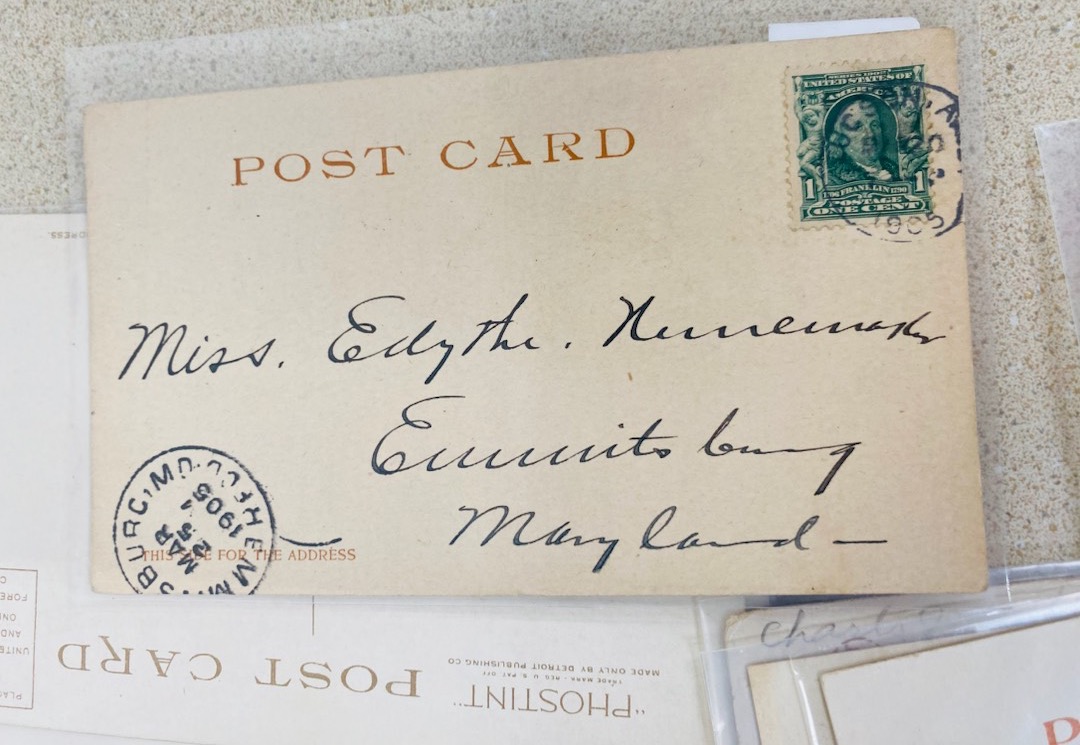 POST CARD
SERIES 1902
UNITED STATES OF
AMERICA
1 1
1706 FRANKLIN 1790
POSTAGE
ONE CENT
20
1905
Miss. Edythe. Nunemaker
Emmitsburg
Maryland —
EMMITSBURG, MD.
MAR
25
1905
REC'D.
THIS SIDE FOR THE ADDRESS
POST CARD
"PHOSTINT"
TRADE MARK - REG. U. S. PAT. OFF.
MADE ONLY BY DETROIT PUBLISHING CO